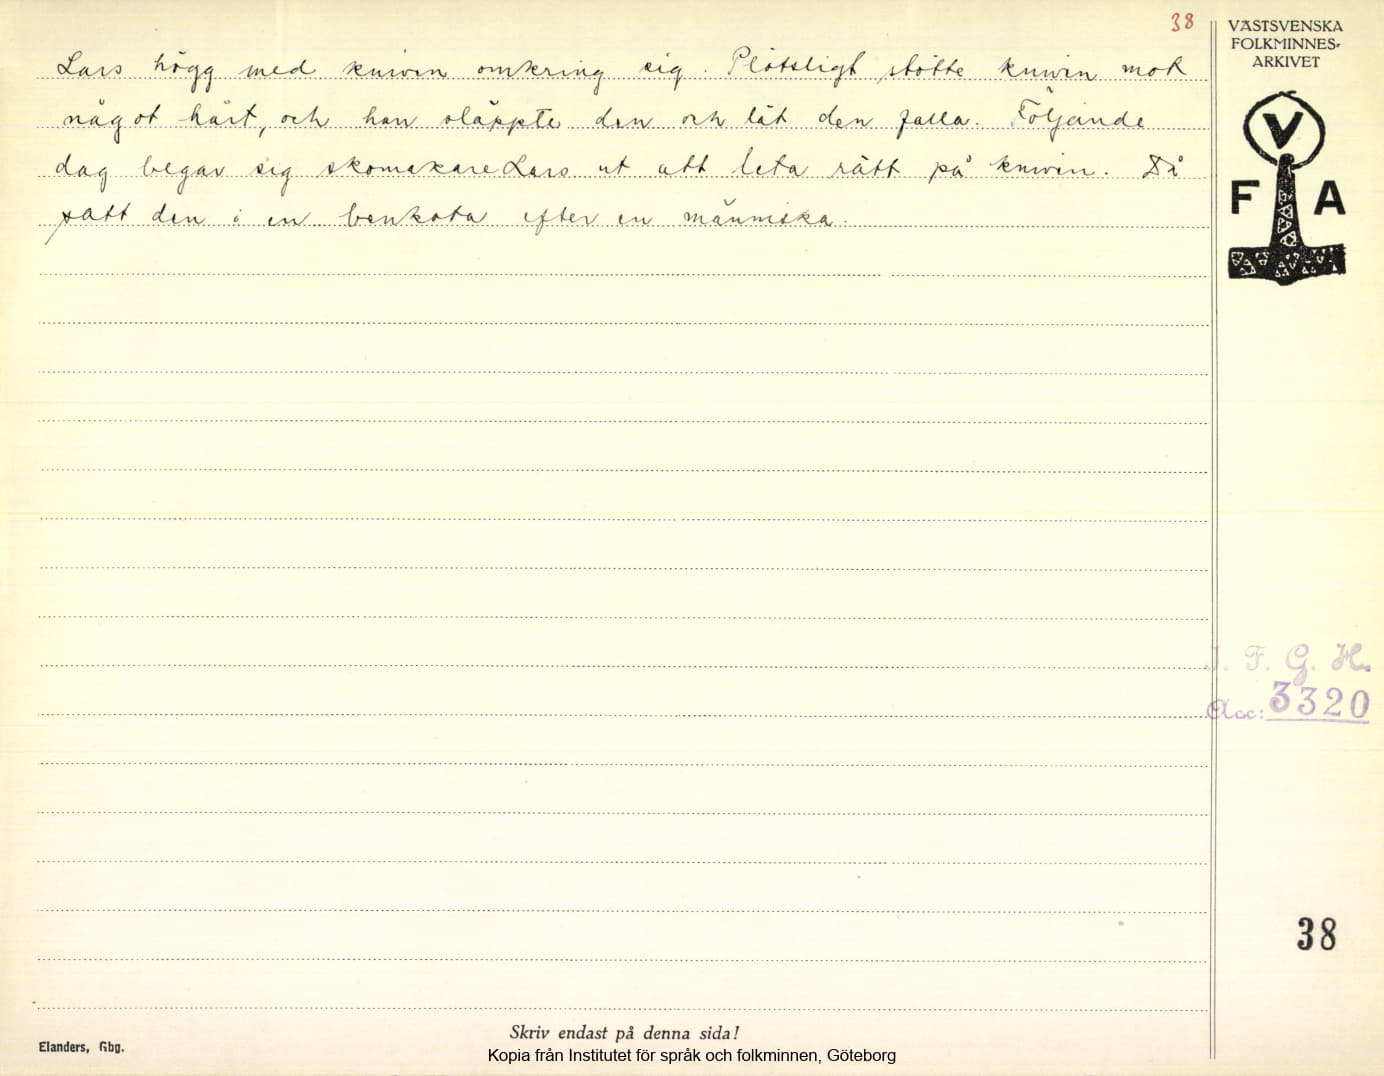 38
VÄSTSVENSKA
FOLKMINNES-
ARKIVET
Lars högg med kniven omkring sig. Plötsligt stötte kniven mot
något hårt, och han släppte den och lät den falla. Följande
dag begav sig skomakare Lars ut att leta rätt på kniven. Då
satt den i en benkota efter en människa.
V
F A
I. F. G. H.
Acc: 3320
38
Skriv endast på denna sida!
Elanders, Gbg.
Kopia från Institutet för språk och folkminnen, Göteborg